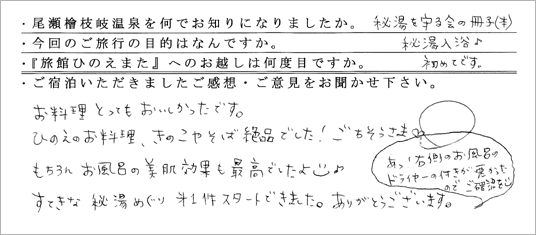 ・尾瀬檜枝岐温泉を何でお知りになりましたか。 秘湯を守る会の冊子(本)
・今回のご旅行の目的はなんですか。 秘湯入浴♪
・『旅館ひのえまた』へのお越しは何度目ですか。 初めてです。
・ご宿泊いただきましたご感想・ご意見をお聞かせ下さい。
お料理とってもおいしかったです。
ひのえのお料理、きのこやそば絶品でした！ごちそうさま
もちろんお風呂の美肌効果も最高でしたよ♪
すてきな秘湯めぐり 第1件スタートできました。ありがとうございます。
あっ、右側のお風呂の
ドライヤーの付きが悪かった
ので ご確認を